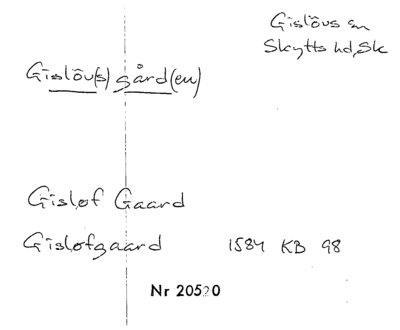 Gislövs sn
Skytts hd, Sk
Gislöv(s) gård(en)
Gislof Gaard
Gislofgaard 1584 KB 98
Nr 20520